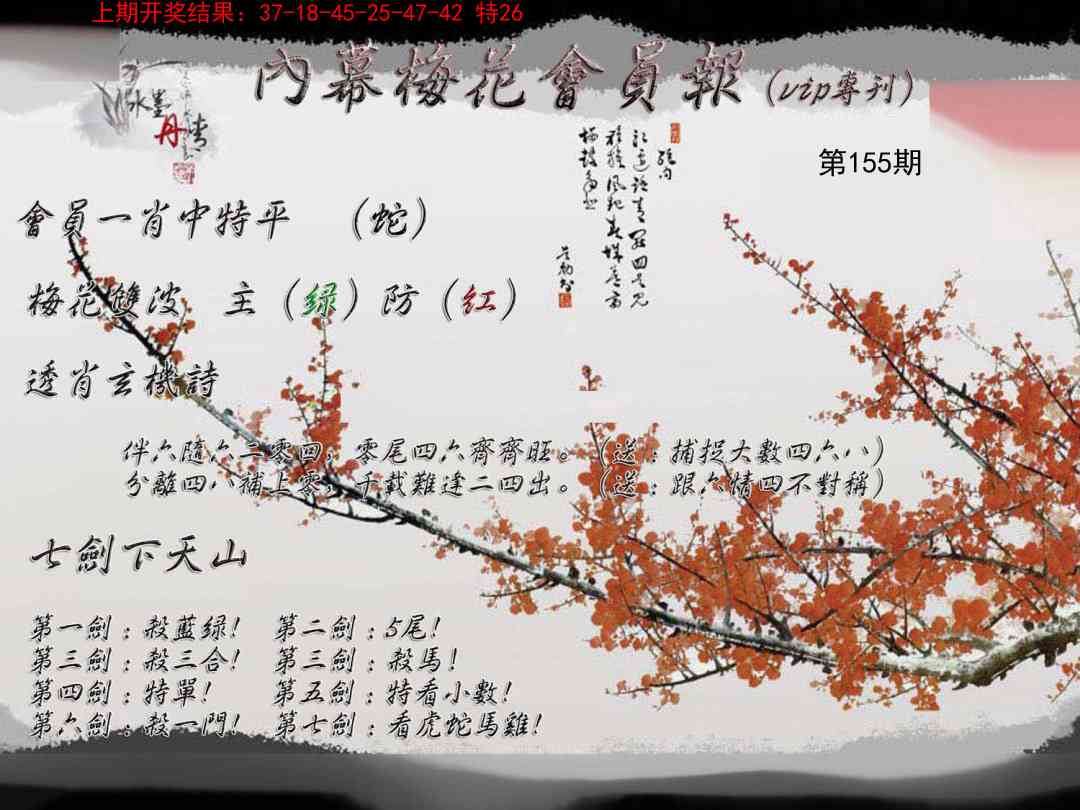 上期开奖结果：37-18-45-25-47-42 特26
內幕梅花會員報（vip專刊）
水墨
丹
第155期
會員一肖中特平 （蛇）
梅花雙波 主（绿）防（红）
透肖玄機詩
伴六隨六二零四，零尾四六齊齊旺。（送：捕捉大數四六八）
分離四八補上零，千載難逢二四出。（送：跟六情四不對稱）
七劍下天山
第一劍：殺藍绿！ 第二劍：5尾！
第三劍：殺三合！ 第三劍：殺馬！
第四劍：特單！ 第五劍：特看小數！
第六劍：殺一門！ 第七劍：看虎蛇馬雞！